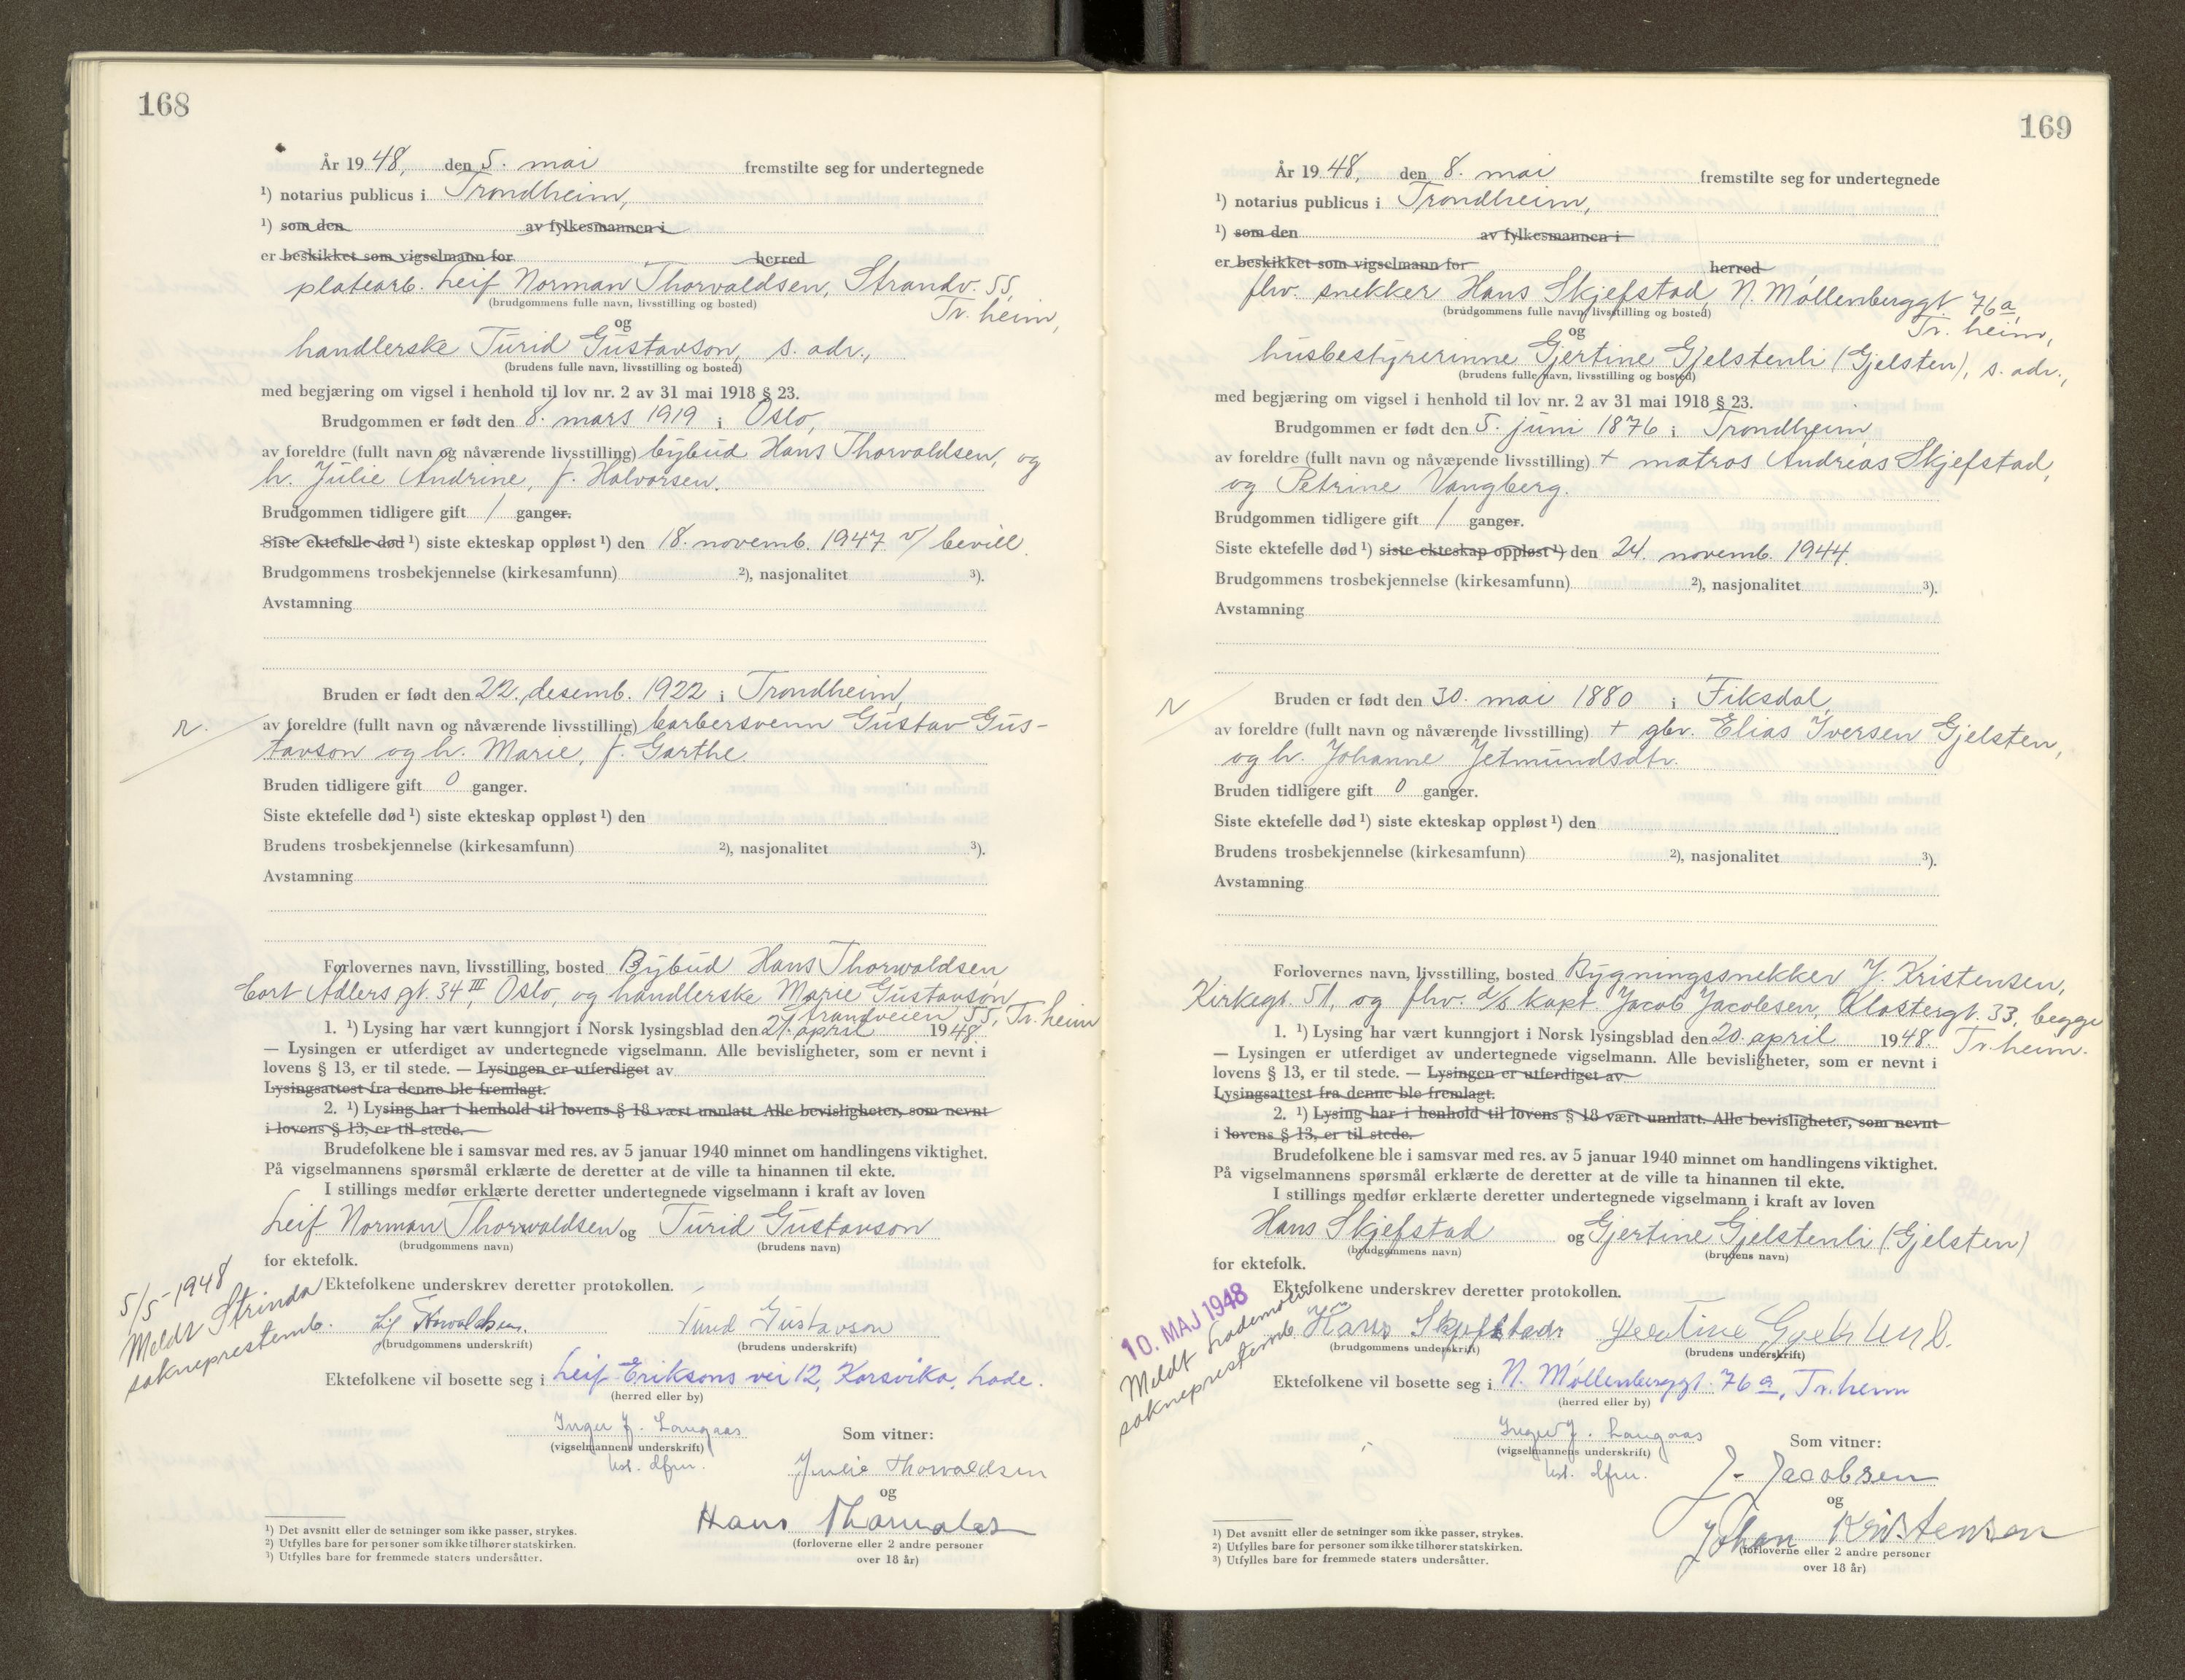 168
År 1948, den 5. mai fremstilte seg for undertegnede
¹) notarius publicus i Trondheim,
¹) som den av fylkesmannen i
er beskikket som vigselmann for herred
platearb. Leif Norman Thorvaldsen, Strandv. 55,
(brudgommens fulle navn, livsstilling og bosted)
Tr.heim,
og
handlerske Turid Gustavson, s. adr.,
(brudens fulle navn, livsstilling og bosted)
med begjæring om vigsel i henhold til lov nr. 2 av 31 mai 1918 § 23.
Brudgommen er født den 8. mars 1919 i Oslo,
av foreldre (fullt navn og nåværende livsstilling) bybud Hans Thorvaldsen, og
h. Julie Andrine, f. Halvorsen.
Brudgommen tidligere gift 1 ganger.
Siste ektefelle død ¹) siste ekteskap oppløst ¹) den 18. novemb. 1947 v/ bevill.
Brudgommens trosbekjennelse (kirkesamfunn) ²), nasjonalitet ³).
Avstamning
Bruden er født den 22. desemb. 1922 i Trondheim,
n.
av foreldre (fullt navn og nåværende livsstilling) barbersvenn Gustav Gus-
tavson og h. Marie, f. Garthe.
Bruden tidligere gift 0 ganger.
Siste ektefelle død ¹) siste ekteskap oppløst ¹) den
Brudens trosbekjennelse (kirkesamfunn) ²), nasjonalitet ³).
Avstamning
Forlovernes navn, livsstilling, bosted Bybud Hans Thorwaldsen
Cort Adlers gt. 34 III, Oslo, og handlerske Marie Gustavson,
Strandveien 55, Tr.heim
1. ¹) Lysing har vært kunngjort i Norsk lysingsblad den 21. april 1948.
— Lysingen er utferdiget av undertegnede vigselmann. Alle bevisligheter, som er nevnt i
lovens § 13, er til stede. — Lysingen er utferdiget av
Lysingsattest fra denne ble fremlagt.
2. ¹) Lysing har i henhold til lovens § 18 vært unnlatt Alle bevisligheter, som nevnt
i lovens § 13, er til stede.
Brudefolkene ble i samsvar med res. av 5 januar 1940 minnet om handlingens viktighet.
På vigselmannens spørsmål erklærte de deretter at de ville ta hinannen til ekte.
I stillings medfør erklærte deretter undertegnede vigselmann i kraft av loven
Leif Norman Thorvaldsen og Turid Gustavson
(brudgommens navn) (brudens navn)
for ektefolk.
5/5-1948
Meldt Strinda
sokneprestemb.
Ektefolkene underskrev deretter protokollen.
Leif Thorvaldsen. Turid Gustavson
(brudgommens underskrift) (brudens underskrift)
Ektefolkene vil bosette seg i Leif Eriksons vei 12, Korsvika, Lade.
(herred eller by)
Inger J. Langaas
(vigselmannens underskrift)
kst. dfm.
Som vitner:
Julie Thorvaldsen
og
Hans Thorvaldsen
(forloverne eller 2 andre personer
over 18 år)
¹) Det avsnitt eller de setninger som ikke passer, strykes.
²) Utfylles bare for personer som ikke tilhører statskirken.
³) Utfylles bare for fremmede staters undersåtter.
169
År 1948, den 8. mai fremstilte seg for undertegnede
¹) notarius publicus i Trondheim,
¹) som den av fylkesmannen i
er beskikket som vigselmann for herred
fhv. snekker Hans Skjefstad, N. Møllenberggt. 76a,
(brudgommens fulle navn, livsstilling og bosted)
Tr.heim,
og
husbestyrerinne Gjertine Gjelstenli (Gjelsten), s. adr.,
(brudens fulle navn, livsstilling og bosted)
med begjæring om vigsel i henhold til lov nr. 2 av 31 mai 1918 § 23.
Brudgommen er født den 5. juni 1876 i Trondheim,
av foreldre (fullt navn og nåværende livsstilling) + matros Andreas Skjefstad,
og Petrine Vangberg.
Brudgommen tidligere gift 1 ganger.
Siste ektefelle død ¹) siste ekteskap oppløst ¹) den 24. novemb. 1944.
Brudgommens trosbekjennelse (kirkesamfunn) ²), nasjonalitet ³).
Avstamning
Bruden er født den 30. mai 1880 i Fiksdal,
n
av foreldre (fullt navn og nåværende livsstilling) + gbr. Elias Iversen Gjelsten,
og h. Johanne Jetmundsdtr.
Bruden tidligere gift 0 ganger.
Siste ektefelle død ¹) siste ekteskap oppløst ¹) den
Brudens trosbekjennelse (kirkesamfunn) ²), nasjonalitet ³).
Avstamning
Forlovernes navn, livsstilling, bosted Bygningssnekker J. Kristensen,
Kirkegt. 51, og fhv. d/s kapt. Jacob Jacobsen, Klostergt. 33, begge
Tr.heim.
1. ¹) Lysing har vært kunngjort i Norsk lysingsblad den 20. april 1948.
— Lysingen er utferdiget av undertegnede vigselmann. Alle bevisligheter, som er nevnt i
lovens § 13, er til stede. — Lysingen er utferdiget av
Lysingsattest fra denne ble fremlagt.
2. ¹) Lysing har i henhold til lovens § 18 vært unnlatt. Alle bevisligheter, som nevnt
i lovens § 13, er til stede.
Brudefolkene ble i samsvar med res. av 5 januar 1940 minnet om handlingens viktighet.
På vigselmannens spørsmål erklærte de deretter at de ville ta hinannen til ekte.
I stillings medfør erklærte deretter undertegnede vigselmann i kraft av loven
Hans Skjefstad og Gjertine Gjelstenli (Gjelsten)
(brudgommens navn) (brudens navn)
for ektefolk.
10. MAJ 1948
Meldt Lademoen
sokneprestemb.
Ektefolkene underskrev deretter protokollen.
Hans Skjefstad Gjertine Gjelstenli.
(brudgommens underskrift) (brudens underskrift)
Ektefolkene vil bosette seg i N. Møllenberggt. 76a, Tr.heim
(herred eller by)
Inger J. Langaas
(vigselmannens underskrift)
kst. dfm.
Som vitner:
J. Jacobsen
og
Johan Kristensen
(forloverne eller 2 andre personer
over 18 år)
¹) Det avsnitt eller de setninger som ikke passer, strykes.
²) Utfylles bare for personer som ikke tilhører statskirken.
³) Utfylles bare for fremmede staters undersåtter.